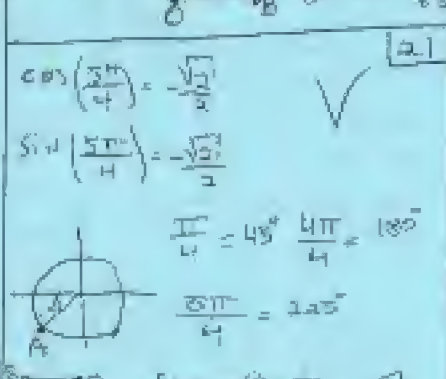 [2.]
cos(5π/4) = -√2/2
sin(5π/4) = -√2/2
π/4 = 45° 4π/4 = 180°
5π/4 = 225°
A